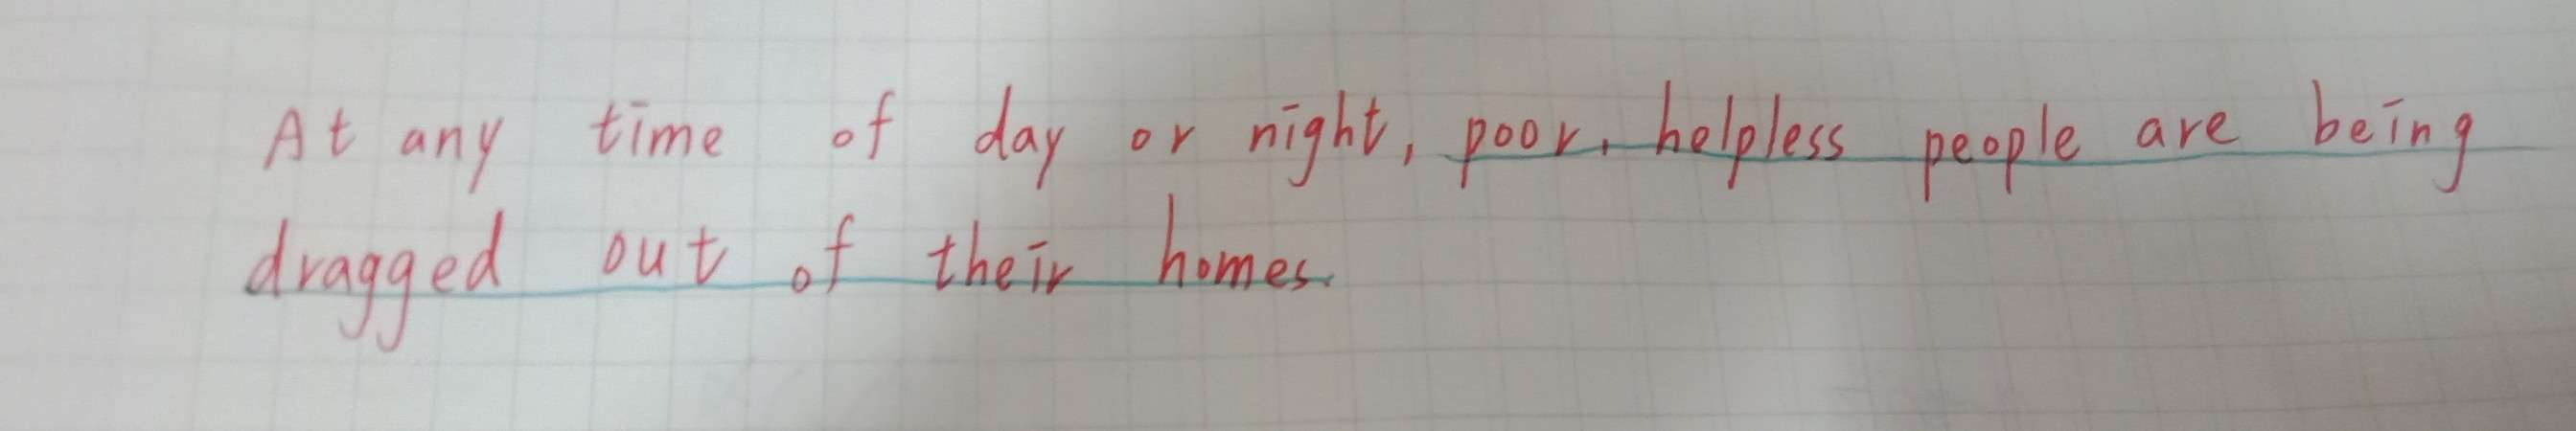 At any time of day or night, poor, helpless people are being
dragged out of their homes.